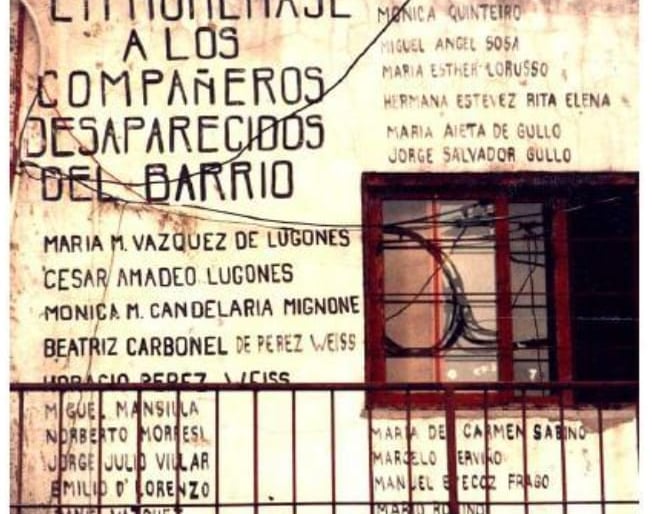 EN HOMENAJE
A LOS
COMPAÑEROS
DESAPARECIDOS
DEL BARRIO
MARIA M. VAZQUEZ DE LUGONES
CESAR AMADEO LUGONES
MONICA M. CANDELARIA MIGNONE
BEATRIZ CARBONEL DE PEREZ WEISS
HORACIO PEREZ WEISS
MIGUEL MANSILLA
NORBERTO MORRESI
JORGE JULIO VILLAR
EMILIO D'LORENZO
VAZQUEZ
MONICA QUINTEIRO
MIGUEL ANGEL SOSA
MARIA ESTHER LORUSSO
HERMANA ESTEVEZ RITA ELENA
MARIA AIETA DE GULLO
JORGE SALVADOR GULLO
MARIA DEL CARMEN SABINO
MARCELO
MANUEL FRAGO
MARIO